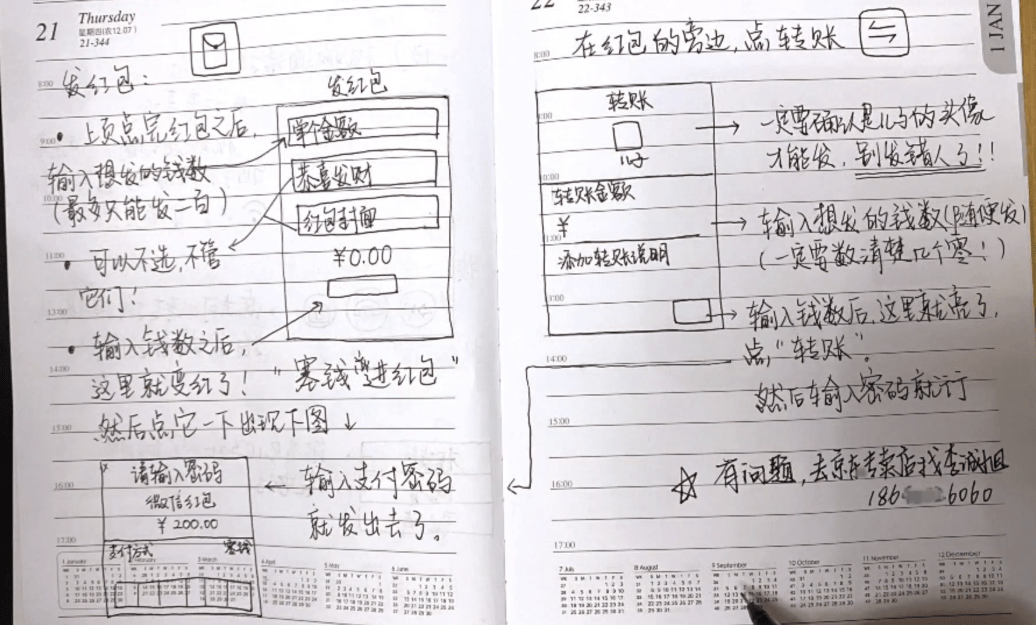 21 Thursday
星期四(农12.07)
21-344
发红包：
发红包
• 上页点完红包之后，
输入想发的钱数
(最多只能发二百)
单个金额
恭喜发财
红包封面
¥0.00
• 可以不选，不管
它们！
• 输入钱数之后，
这里就变红了！"塞钱进红包"
然后点它一下出现下图↓
请输入密码
微信红包
¥200.00
支付方式 零钱
← 输入支付密码
就发出去了。
8:00
9:00
10:00
11:00
13:00
14:00
15:00
16:00
17:00
1 January
2 February
3 March
4 April
5 May
6 June
22
22-343
1 JAN
在红包的旁边，点转账
转账
儿子
→ 一定要确认是儿子的头像
才能发，别发错人了!!
转账金额
¥
→ 输入想发的钱数(随便发)
(一定要数清楚几个零！)
添加转账说明
→ 输入钱数后，这里就亮了，
点"转账"。
然后输入密码就行
☆ 有问题，去京东专卖店找李诚姐
186 6060
8:00
10:00
11:00
14:00
15:00
16:00
17:00
7 July
8 August
9 September
10 October
11 November
12 December